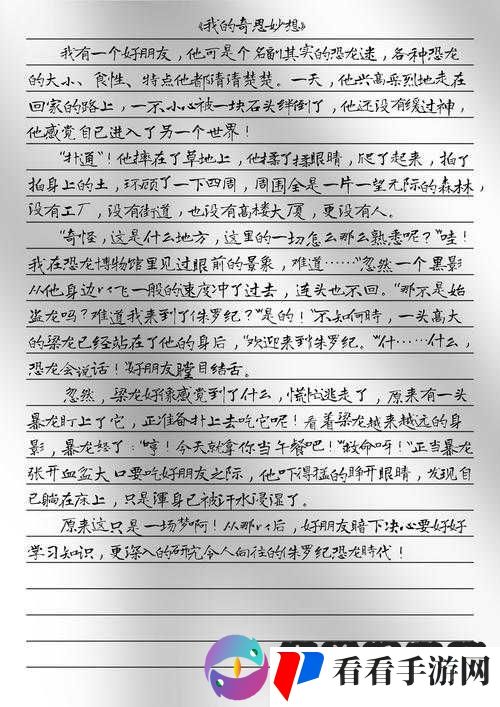 《我的奇思妙想》
我有一个好朋友，他可是个名副其实的恐龙迷，各种恐龙
的大小、食性、特点他都清清楚楚。一天，他兴高采烈地走在
回家的路上，一不小心被一块石头绊倒了，他还没有缓过神，
他感觉自己进入了另一个世界！
“扑通”！他摔在了草地上，他揉了揉眼睛，爬了起来，拍了
拍身上的土，环顾了一下四周，周围全是一片一望无际的森林，
没有工厂，没有街道，也没有高楼大厦，更没有人。
“奇怪，这是什么地方，这里的一切怎么那么熟悉呢？”哇！
我在恐龙博物馆里见过眼前的景象，难道……”忽然一个黑影
从他身边以飞一般的速度冲了过去，连头也不回。“那不是始
盗龙吗？难道我来到了侏罗纪？”“是的！”不知何時，一头高大
的梁龙已经站在了他的身后，“欢迎来到侏罗纪。”“什……什么，
恐龙会说话！”好朋友瞠目结舌。
忽然，梁龙好像感觉到了什么，慌忙逃走了，原来有一头
暴龙盯上了它，正准备扑上去吃它呢！看着梁龙越来越远的身
影，暴龙怒了：“哼！今天就拿你当午餐吧！”“救命呀！”正当暴龙
张开血盆大口要吃好朋友之际，他吓得猛的睁开眼睛，发现自
己躺在床上，只是渾身已被汗水浸湿了。
原来这只是一场梦啊！从那以后，好朋友暗下决心要好好
学习知识，更深入的研究令人向往的侏罗纪恐龙時代！
看看手游网